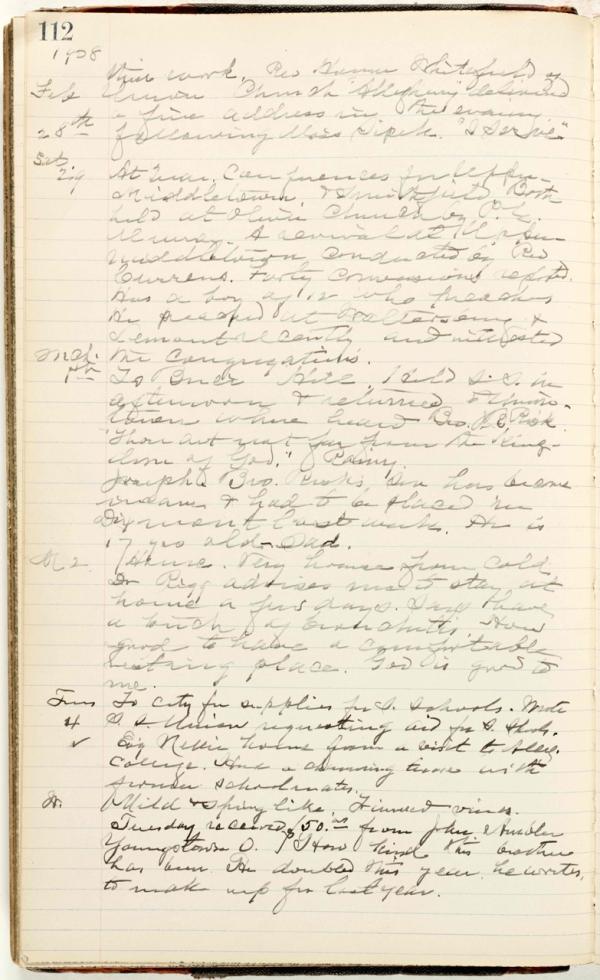 112
1908
this work. Rev Homer Whitefield of
Feb Union Church Allegheny delivered
a fine address in the evening
28th following Miss Sipch. "I Serve"
Sat
29 At Quar. Conferences for Upper
Middletown, & Smithfield, Both
held at Olive Church by P. E.
A revival at Upper
Middletown conducted by Rev
Currens. Forty Conversions reported.
Has a boy of 12 who preaches
He preached at &
Lemont recently and interested
Mch. the congregations.
1st To Bner Hill. Held S. S. in
afternoon & returned to Union-
town where heard Bro. Risk
"Thou art not far from the King-
dom of God." Rainy.
Joseph Bro. Risk's son has become
insane & had to be placed in
Dixmont last week. He is
17 yrs old - Sad.
M 2 Home. Very hoarse from cold
Dr Rigg advises me to stay at
home a few days. Says I have
a touch of bronchitis. How
good to have a comfortable
resting place. God is good to
me.
Tues To city for supplies for S. Schools. Wrote
4 S. S. Union requesting aid for S. Schls.
Eig Nellie home from a visit to Alleg.
College. Had a charming time with
former schoolmates.
W. Mild & spring like. Trimmed vines.
Tuesday received $50.00 from John
Youngstown O. How kind this brother
has been. He doubled this year, he writes,
to make up for last year.